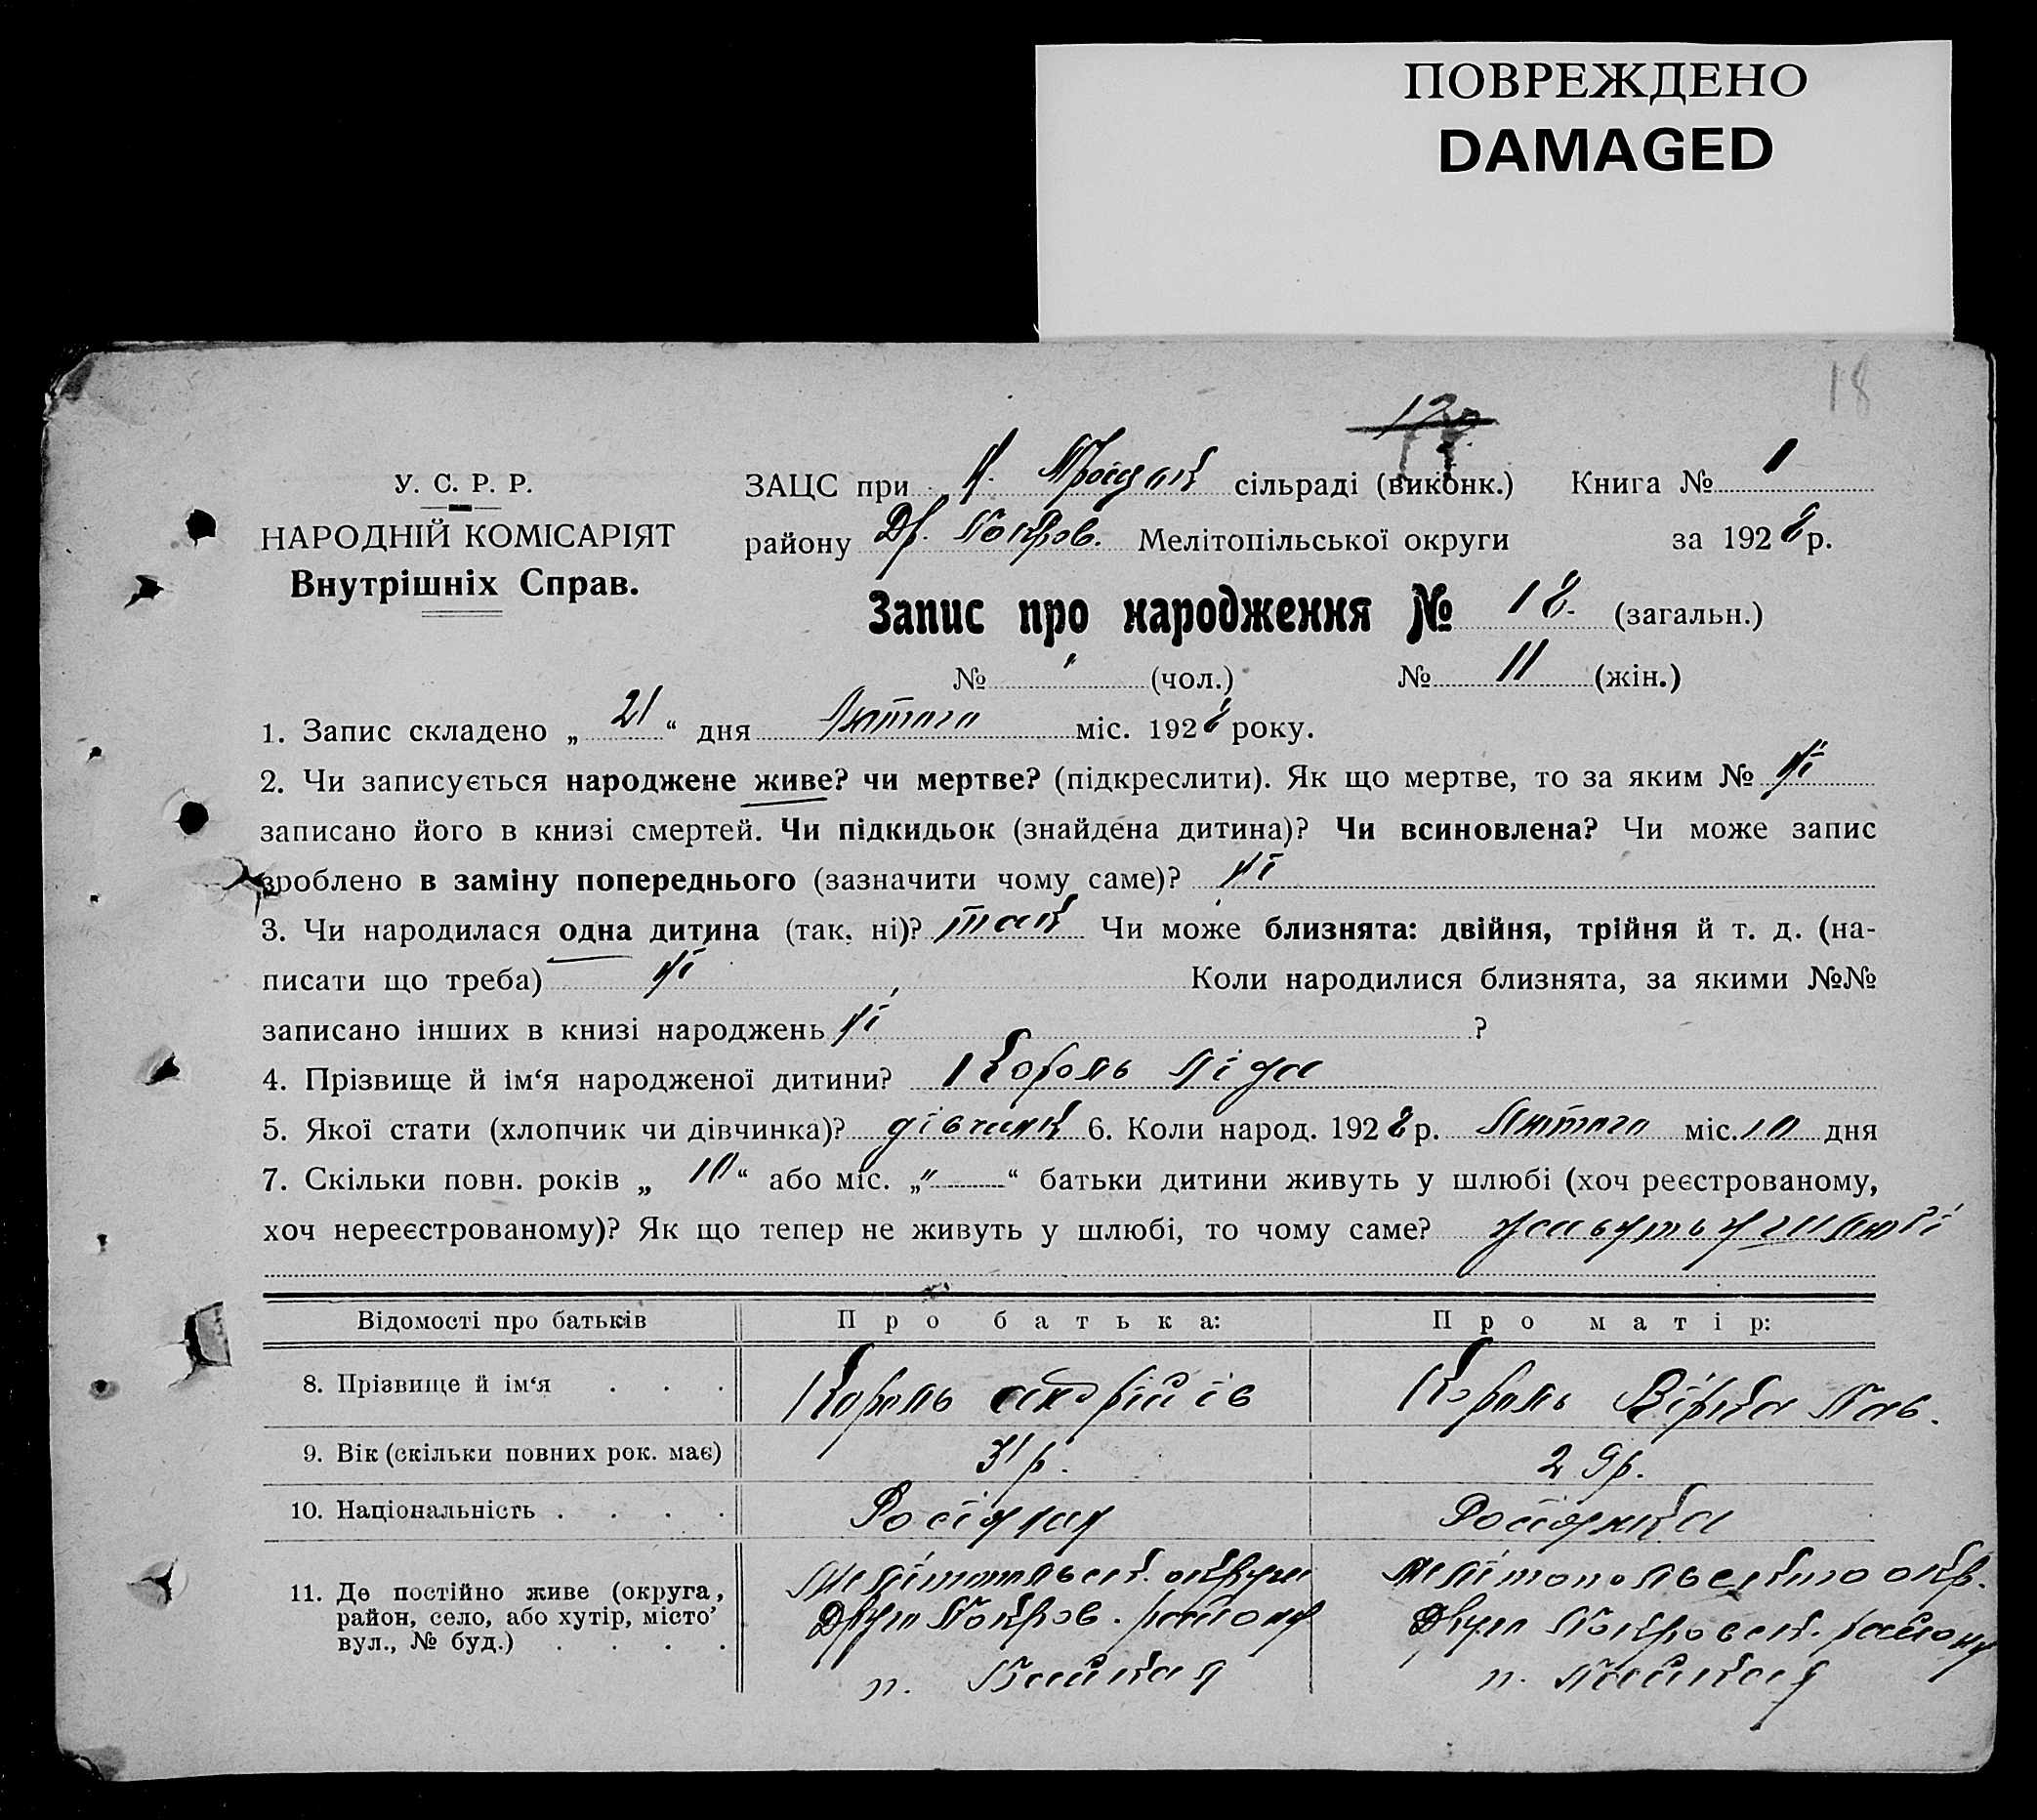 ПОВРЕЖДЕНО
DAMAGED
18
У. С. Р. Р.
НАРОДНІЙ КОМІСАРІЯТ
Внутрішніх Справ.
ЗАЦС при Н. Троицак сільраді (виконк.) Книга № 1
району Др. Покров. Мелітопільської округи за 1928 р.
Запис про народження № 18. (загальн.)
№ (чол.) № 11 (жін.)
1. Запис складено „ 21 “ дня Лютого міс. 1928 року.
2. Чи записується народжене живе? чи мертве? (підкреслити). Як що мертве, то за яким № ні
записано його в книзі смертей. Чи підкидьок (знайдена дитина)? Чи всиновлена? Чи може запис
зроблено в заміну попереднього (зазначити чому саме)? ні
3. Чи народилася одна дитина (так, ні)? так Чи може близнята: двійня, трійня й т. д. (на-
писати що треба) ні Коли народилися близнята, за якими №№
записано інших в книзі народжень ні ?
4. Прізвище й ім‘я народженої дитини? Король Ліда
5. Якої стати (хлопчик чи дівчинка)? дівчинк 6. Коли народ. 1928 р. Лютого міс. 10 дня
7. Скільки повн. років „ 10 “ або міс. „ “ батьки дитини живуть у шлюбі (хоч реєстрованому,
хоч нереєстрованому)? Як що тепер не живуть у шлюбі, то чому саме? живуть у шлюбі
Відомості про батьків Про батька: Про матір:
8. Прізвище й ім‘я . . . Король Андрій Ів Король Вірка Пав.
9. Вік (скільки повних рок. має) 31 р. 29 р.
10. Національність . . . . Росіянин Росіянка
11. Де постійно живе (округа, район, село, або хутір, місто, вул., № буд.) . . . .
Мелітопольськ. округи
Друго Покров. району
п.
Мелітопольського окр.
Друго Покровськ. району
п.